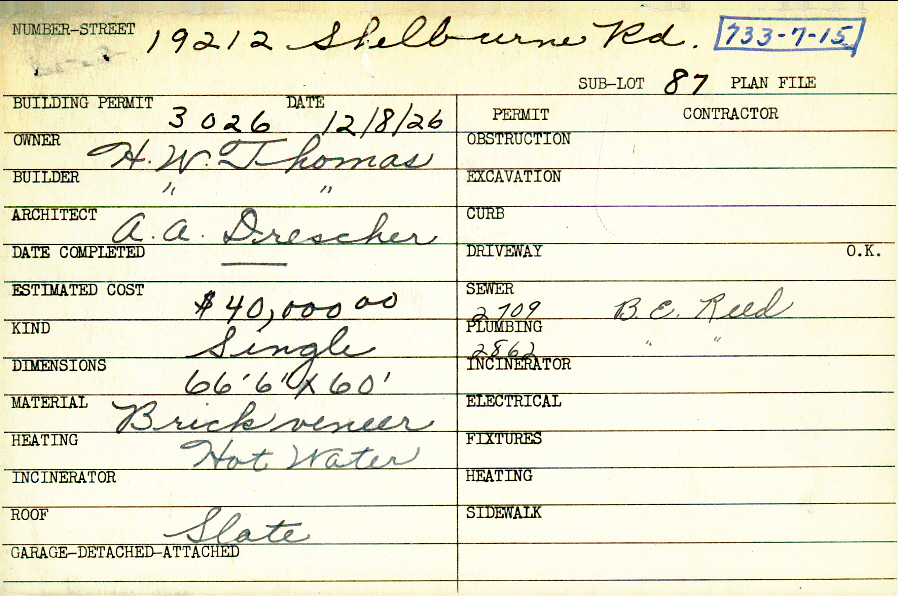 NUMBER-STREET 19212 Shelburne Rd. 733-7-15
SUB-LOT 87 PLAN FILE
BUILDING PERMIT 3026 DATE 12/8/26
PERMIT CONTRACTOR
OWNER H. W. Thomas
OBSTRUCTION
BUILDER " "
EXCAVATION
ARCHITECT A. A. Drescher
CURB
DATE COMPLETED —
DRIVEWAY O.K.
ESTIMATED COST $40,000 00
SEWER 2709 B. E. Reed
KIND Single
PLUMBING 2862 " "
DIMENSIONS 66'6" X 60'
INCINERATOR
MATERIAL Brick veneer
ELECTRICAL
HEATING Hot Water
FIXTURES
INCINERATOR
HEATING
ROOF Slate
SIDEWALK
GARAGE-DETACHED-ATTACHED